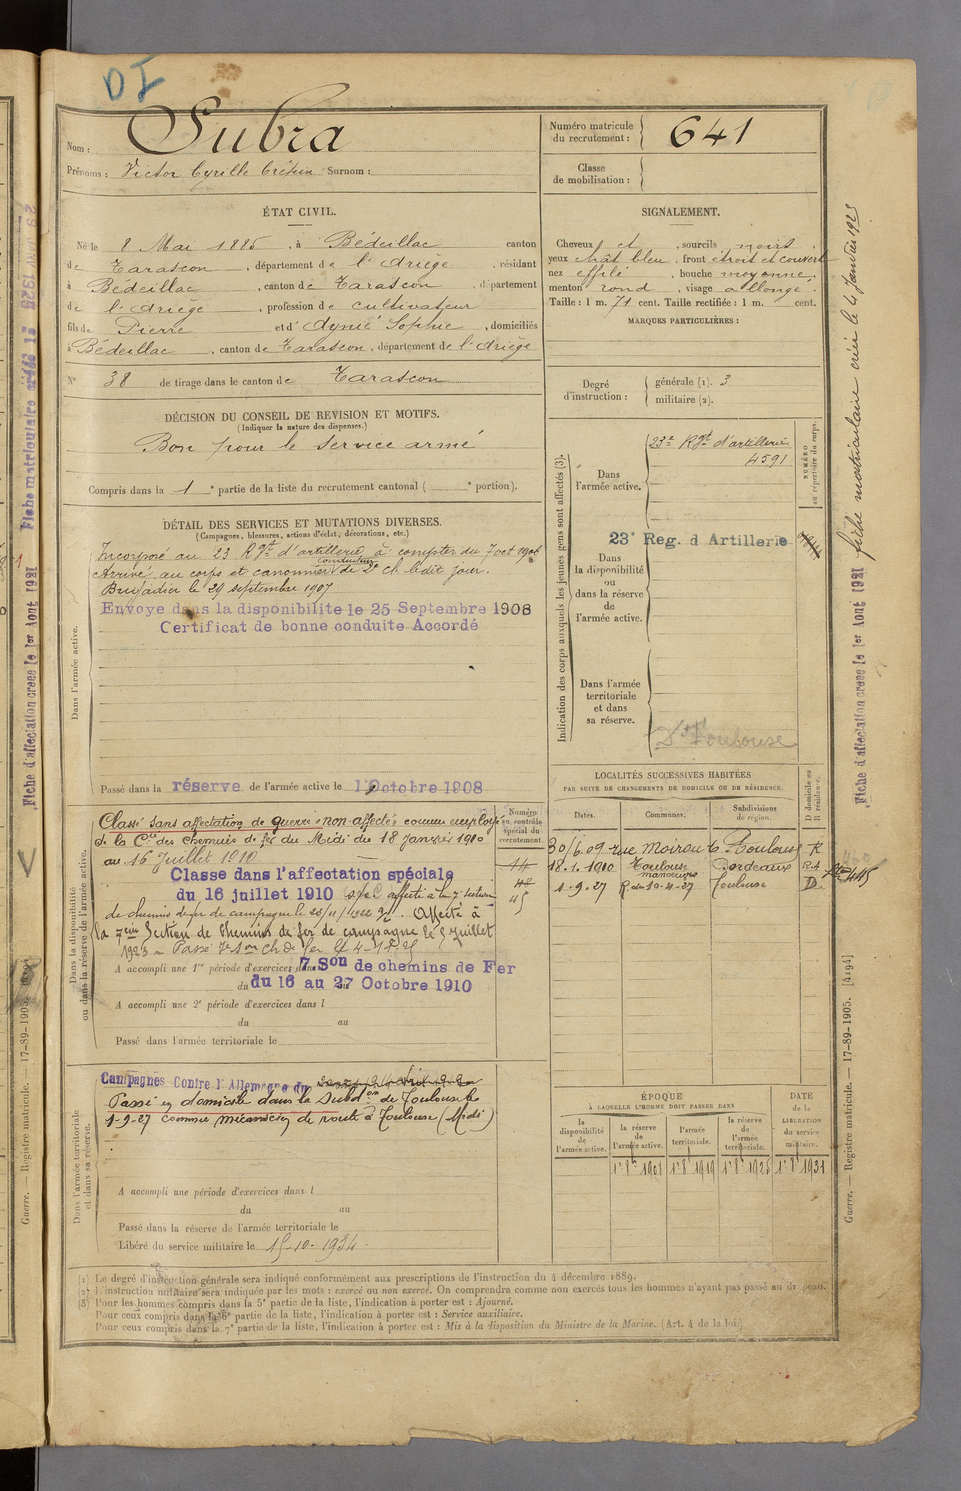 DI
Nom : Subra
Prénoms : Victor Cyrille Surnom :
Numéro matricule
du recrutement : 641
Classe
de mobilisation :
ÉTAT CIVIL.
Né le 8 Mai 1885, à Bédeillac canton
de Tarascon, département de l'Ariège, résidant
à Bédeillac, canton de Tarascon, département
de l'Ariège, profession de cultivateur
fils de Pierre et d' Aynié Sophie, domiciliés
à Bédeillac, canton de Tarascon, département de l'Ariège
N° 38 de tirage dans le canton de Tarascon
SIGNALEMENT.
Cheveux et, sourcils noirs.
yeux chât bleu, front étroit et couvert
nez effilé, bouche moyenne
menton rond, visage allongé.
Taille : 1 m. 71 cent. Taille rectifiée : 1 m. cent.
MARQUES PARTICULIÈRES :
Degré
d'instruction :
générale (1). 3
militaire (2).
DÉCISION DU CONSEIL DE REVISION ET MOTIFS.
(Indiquer la nature des dispenses.)
Bon pour le service armé
Compris dans la 1e partie de la liste du recrutement cantonal ( e portion).
DÉTAIL DES SERVICES ET MUTATIONS DIVERSES.
(Campagnes, blessures, actions d'éclat, décorations, etc.)
Dans l'armée active.
Incorporé au 23 Rgt d'artillerie à compter du 7 oct 1906
Arrivé au corps et canonnier conducteur de 2e cl. le dit jour.
Brigadier le 29 septembre 1907
Envoye dans la disponibilite le 25 Septembre 1908
Certificat de bonne conduite Accordé
Passé dans la réserve de l'armée active le 1 Octobre 1908
Indication des corps auxquels les jeunes gens sont affectés (3).
NUMÉRO
au répertoire du corps.
Dans
l'armée active.
23e Rgt d'artillerie
4591
23e Reg. d Artillerie
Dans
la disponibilité
ou
dans la réserve
de
l'armée active.
Dans l'armée
territoriale
et dans
sa réserve.
Toulouse
Dans la disponibilité
ou dans la réserve de l'armée active.
Numéro
au contrôle
spécial du
recrutement.
Classé sans affectation de guerre "non-affectés comme employé
de la Cie des chemins de fer du Midi du 18 janvier 1910
au 16 juillet 1910
Classe dans l'affectation spéciale
du 16 juillet 1910 affecté à la 7e section
de chemins de fer de campagne le . Affecté à
la 7eme Section de Chemins de fer de campagne le 5 Juillet
1923
45
A accompli une 1re période d'exercices dans 7 Son de chemins de Fer
du 16 au 27 Octobre 1910
A accompli une 2e période d'exercices dans l
du au
Passé dans l'armée territoriale le
LOCALITÉS SUCCESSIVES HABITÉES
PAR SUITE DE CHANGEMENTS DE DOMICILE OU DE RÉSIDENCE.
Dates. Communes. Subdivisions de région. D domicile ou R résidence.
30/6.09 rue Toulouse R
18.1.1910 Toulouse Bordeaux R.A
1-9-27 R. du 10-4-27 Toulouse D.
Dans l'armée territoriale
et dans sa réserve.
Campagnes Contre l'Allemagne du
Passé en domicile dans la Subdon de Toulouse le
1-9-27 comme mécanicien de route à Toulouse (Midi)
A accompli une période d'exercices dans l
du au
Passé dans la réserve de l'armée territoriale le
Libéré du service militaire le 15-10-1934.
ÉPOQUE
À LAQUELLE L'HOMME DOIT PASSER DANS
DATE
de la
LIBÉRATION
du service
militaire.
la disponibilité de l'armée active.
la réserve de l'armée active.
l'armée territoriale.
la réserve de l'armée territoriale.
1r 8b 1908 1r 8b 1919 1r 8b 1925 1r 8b 1931
(1) Le degré d'instruction générale sera indiqué conformément aux prescriptions de l'instruction du 4 décembre 1889.
(2) L'instruction militaire sera indiquée par les mots : exercé ou non exercé. On comprendra comme non exercés tous les hommes n'ayant pas passé au drapeau.
(3) Pour les hommes compris dans la 5e partie de la liste, l'indication à porter est : Ajourné.
Pour ceux compris dans la 6e partie de la liste, l'indication à porter est : Service auxiliaire.
Pour ceux compris dans la 7e partie de la liste, l'indication à porter est : Mis à la disposition du Ministre de la Marine. (Art. 4 de la loi)
fiche matriculaire créée le 4 Janvier 1925
Fiche d'affectation creee le 1er Aout 1921
Guerre. — Registre matricule. — 17-89-1905. [4194]
Fiche matriculaire créée le
Fiche d'affectation creee le 1er Aout 1921
Guerre. — Registre matricule. — 17-89-1905.